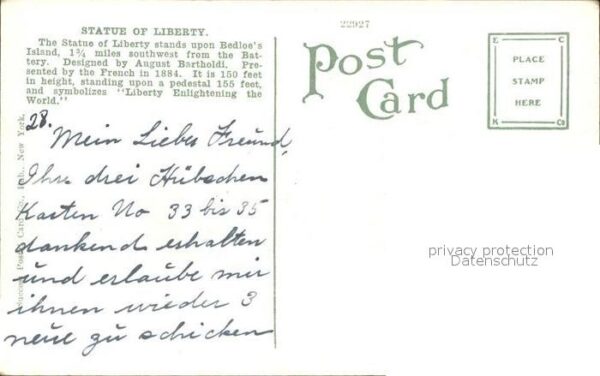 STATUE OF LIBERTY.
The Statue of Liberty stands upon Bedloe's
Island, 1¾ miles southwest from the Bat-
tery. Designed by August Bartholdi. Pre-
sented by the French in 1884. It is 150 feet
in height, standing upon a pedestal 155 feet,
and symbolizes "Liberty Enlightening the
World."
22927
Post
Card
E C
PLACE
STAMP
HERE
K Co
28.
Mein Lieber Freund,
Ihre drei Hübschen
Karten No 33 bis 35
dankend erhalten
und erlaube mir
ihnen wieder 3
neue zu schicken
Success Postal Card Co., Pub., New York.
privacy protection
Datenschutz